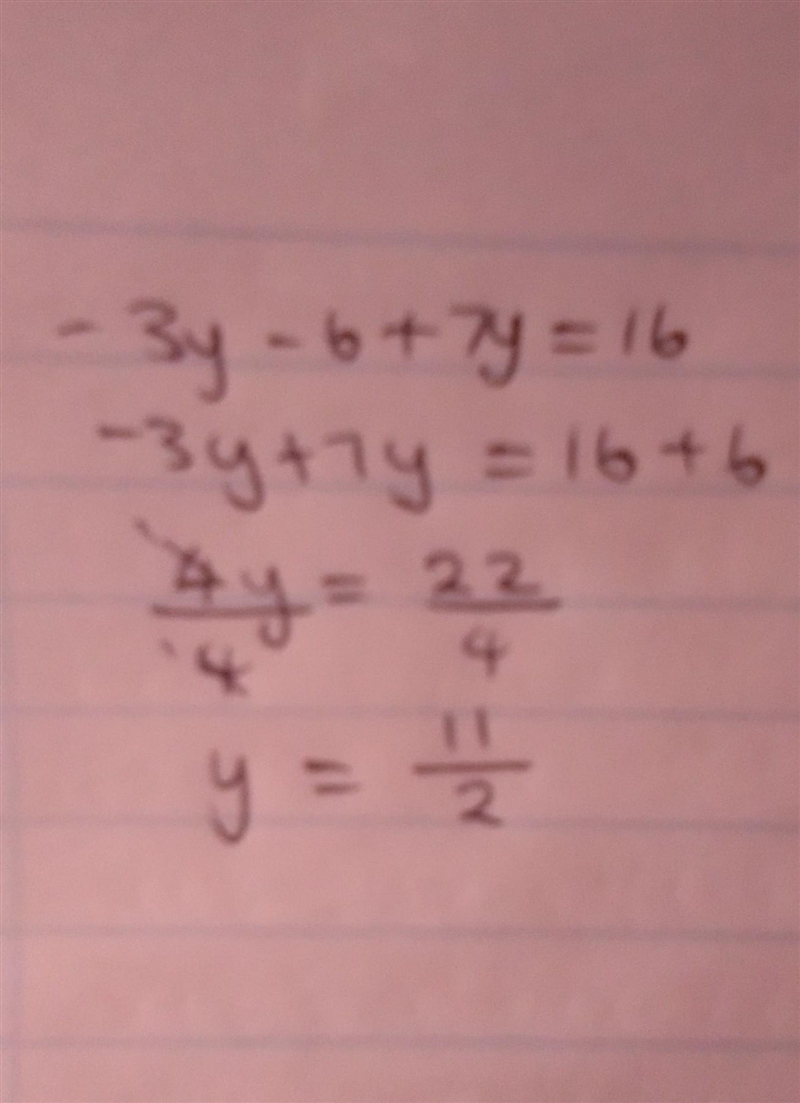 -3y - 6 + 7y = 16
-3y + 7y = 16 + 6
4y/4 = 22/4
y = 11/2